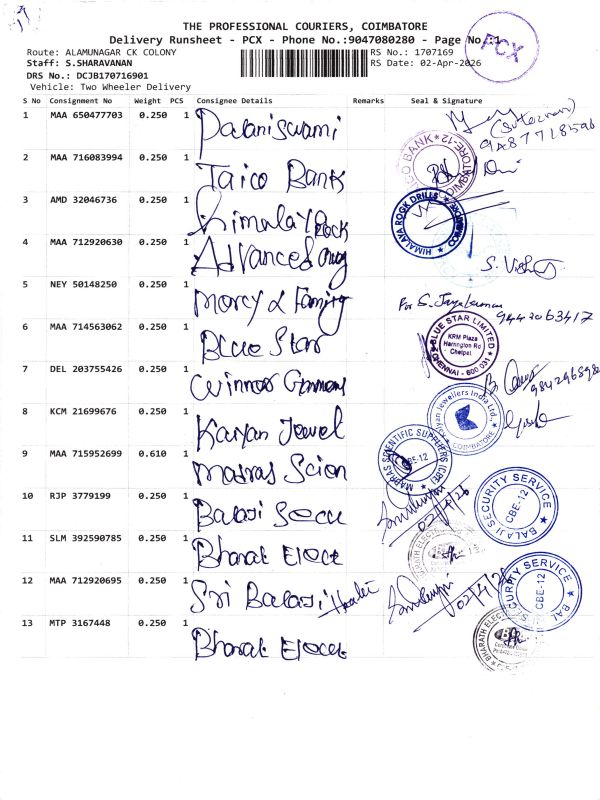 THE PROFESSIONAL COURIERS, COIMBATORE
Delivery Runsheet - PCX - Phone No.:9047080280 - Page No.:1
PCX
Route: ALAMUNAGAR CK COLONY
RS No.: 1707169
Staff: S.SHARAVANAN
RS Date: 02-Apr-2026
DRS No.: DCJB170716901
Vehicle: Two Wheeler Delivery
S No Consignment No Weight PCS Consignee Details Remarks Seal & Signature
1 MAA 650477703 0.250 1 Palaniswami
9487718596
2 MAA 716083994 0.250 1 Taico Bank
BANK CBE-12 COIMBATORE
3 AMD 32046736 0.250 1 Himalay Rock
HIMALAYA ROCK DRILLS COIMBATORE
4 MAA 712920630 0.250 1 Advanced
S. Vish
5 NEY 50148250 0.250 1 Marcy & Family
For S. Jayalaxman
9442063417
6 MAA 714563062 0.250 1 Blue Star
BLUE STAR LIMITED KRM Plaza Harrington Rd Chetpat CHENNAI - 600 031
7 DEL 203755426 0.250 1 Winner
8 KCM 21699676 0.250 1 Kalyan Jewel
Kalyan Jewellers India Ltd., COIMBATORE
9 MAA 715952699 0.610 1 Madras Scien
MADRAS SCIENTIFIC SUPPLIERS (CBE) CBE-12
10 RJP 3779199 0.250 1 Balaji Secu
02/4/26
BALAJI SECURITY SERVICE CBE-12
11 SLM 392590785 0.250 1 Bharat Elect
BHARATH ELEC
12 MAA 712920695 0.250 1 Sri Balaji
02/4/26
BALAJI SECURITY SERVICE CBE-12
13 MTP 3167448 0.250 1 Bharat Elect
BHARATH ELEC